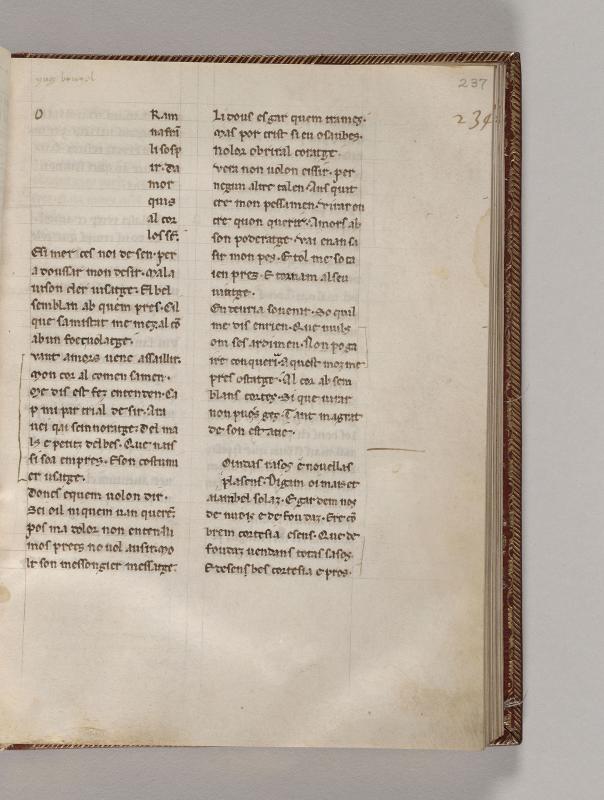 237
234
O Ram
nafrī
li sosp
ir. Da
mor
quis
al cor
los sē.
E si mor ces noi de sen. per
a doussar mon desir. Mala
vison cler visatge. El bel
semblan ab quem pres. Cil
que samistat me mezal cō
ab un
vant amors vene assallir.
Mon cor al comensamen.
Me dis est fez entenden. La
p mi par trial desir.
Del ma
ls e petit delbes. Que nais
si soa empres. E son costum
er usatge.
Doncs equem volon dir.
Sei oil niquem van querē.
Pos ma dolor non enten. Ni
mos precs no vol ausir. Mo
lt son messongier messatge.
Li vous esgar quem trames.
Mas por crist si eu osaubes.
Nolor obriral coratge.
Vera non volon eissir. per
negun altre talen. Ans quit
cre mon pessamen. virar on
cre quon querir. Amors ab
son poderatge. vai enansa
sir mon pes. E tol me so ca
ien pres. E tornam al seu
usatge.
Enveuria sovenir. So qual
me dis enrien. Que
om ses ardimen. Non poga
ire conquerir. Aquest moz me
pres ostatge. Al cor ab sem
blans cortes. Si que virar
non puos ges. Tant magrat
de son estatie.
Oimias rasos e novellas
plasens. Digam oimais et
aianbel solaz. E gardem nos
de nuois e de foudaz. Ere cō
brem cortesia e sens. Que de
foudaz vendans totas sasos.
E de sens bes cortesia e pros.